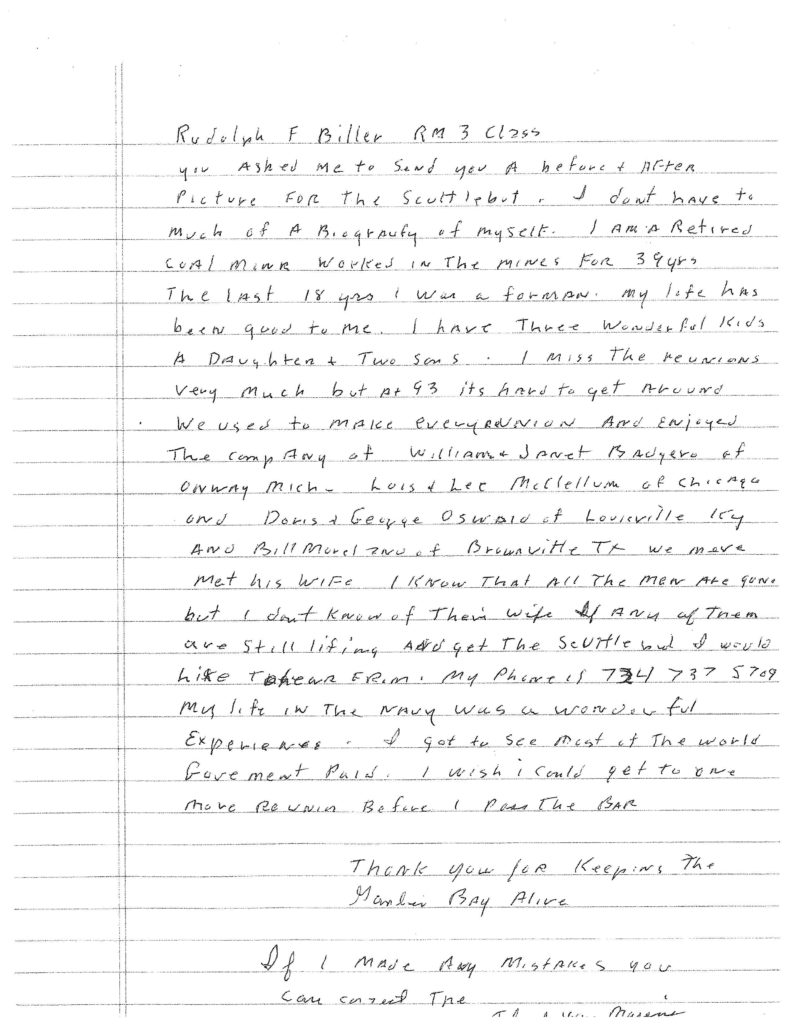 Rudolph F Biller RM 3 Class
you Asked me to Send you A before + AFTER
Picture FOR The Scuttlebut. I dont have to
much of A Biograufy of myself. I AM A Retired
COAL MINR Worked IN The MINES FOR 39 yrs
The LAST 18 yrs I was a forMAN. My life has
been good to me. I have Three Wonderful Kids
A Daughter + Two sons. I MISS The reunions
Very Much but At 93 its hard to get Around
We used to MAKE every REUNION AND ENjoyed
The compAny of William + Janet Badgero of
ONWAY Mich- Lois + Lee McClellum of Chicago
and Doris + George OSWALD of Louieville Ky
AND Bill of Brownville TX we
Met his WIFE I Know That All The MEN Are gone
but I dont Know of Their Wife If ANY of Them
are Still lifing AND get The Scuttlebut I would
Like To hear FROM. My Phone is 724 737 5709
My life in The NAVY was a wonderful
Experience. I got to See Most of The world
Government Paid. I wish i could get to one
More Reunin Before I Pass The BAR
Thank you for Keeping The
Gambier BAY Alive
If I MADE Any Mistakes you
Can correct The